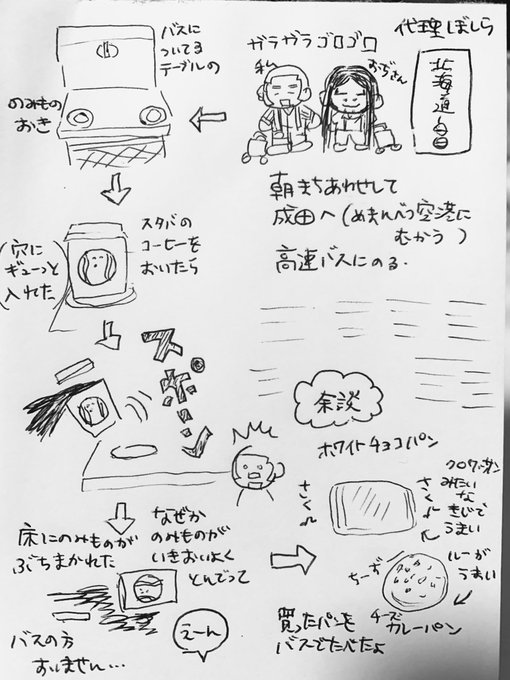 代理ぼしら
北海道1日目
ガラガラゴロゴロ
私
おぢさん
朝まちあわせして
成田へ(めまんべつ空港に
むかう)
高速バスにのる.
バスに
ついてる
テーブルの
のみもの
おき
スタバの
コーヒーを
おいたら
(穴に
ギューっと
入れた)
スポーン
なぜか
のみものが
いきおいよく
とんでって
床にのみものが
ぶちまかれた
えーん
バスの方
すいません…
余談
ホワイトチョコパン
さく♪
さく♪
クロワッサン
みたい
な
きじで
うまい
ちーず
ルーが
うまい
チーズ
カレーパン
買ったパンを
バスでたべたよ